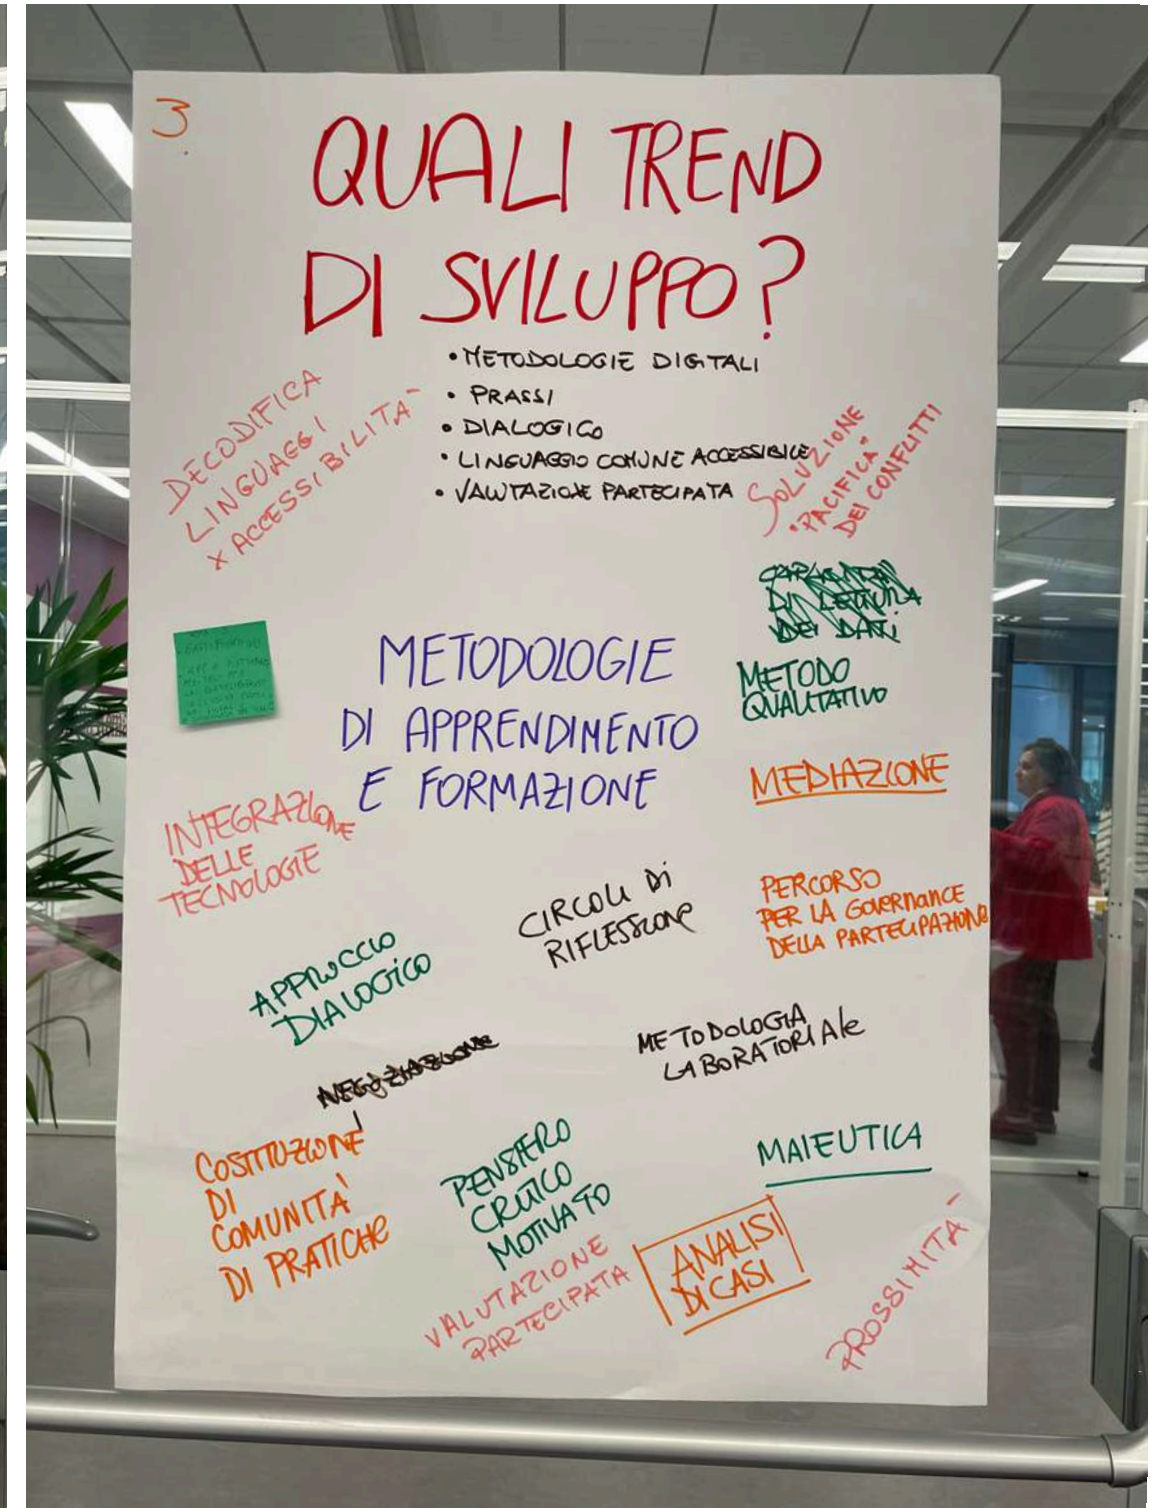 3.
QUALI TREND
DI SVILUPPO?
• METODOLOGIE DIGITALI
• PRASSI
• DIALOGICO
• LINGUAGGIO COMUNE ACCESSIBILE
• VALUTAZIONE PARTECIPATA
DECODIFICA
LINGUAGGI
X ACCESSIBILITA'
SOLUZIONE
"PACIFICA"
DEI CONFLITTI
DI LETTURA
DEI DATI
METODO
QUALITATIVO
METODOLOGIE
DI APPRENDIMENTO
E FORMAZIONE
MEDIAZIONE
INTEGRAZIONE
DELLE
TECNOLOGIE
CIRCOLI DI
RIFLESSIONE
PERCORSO
PER LA GOVERNANCE
DELLA PARTECIPAZIONE
APPROCCIO
DIALOGICO
METODOLOGIA
LABORATORIALE
NEGOZIAZIONE
COSTITUZIONE
DI
COMUNITÀ
DI PRATICHE
PENSIERO
CRITICO
MOTIVATO
MAIEUTICA
VALUTAZIONE
PARTECIPATA
ANALISI
DI CASI
PROSSIMITA'